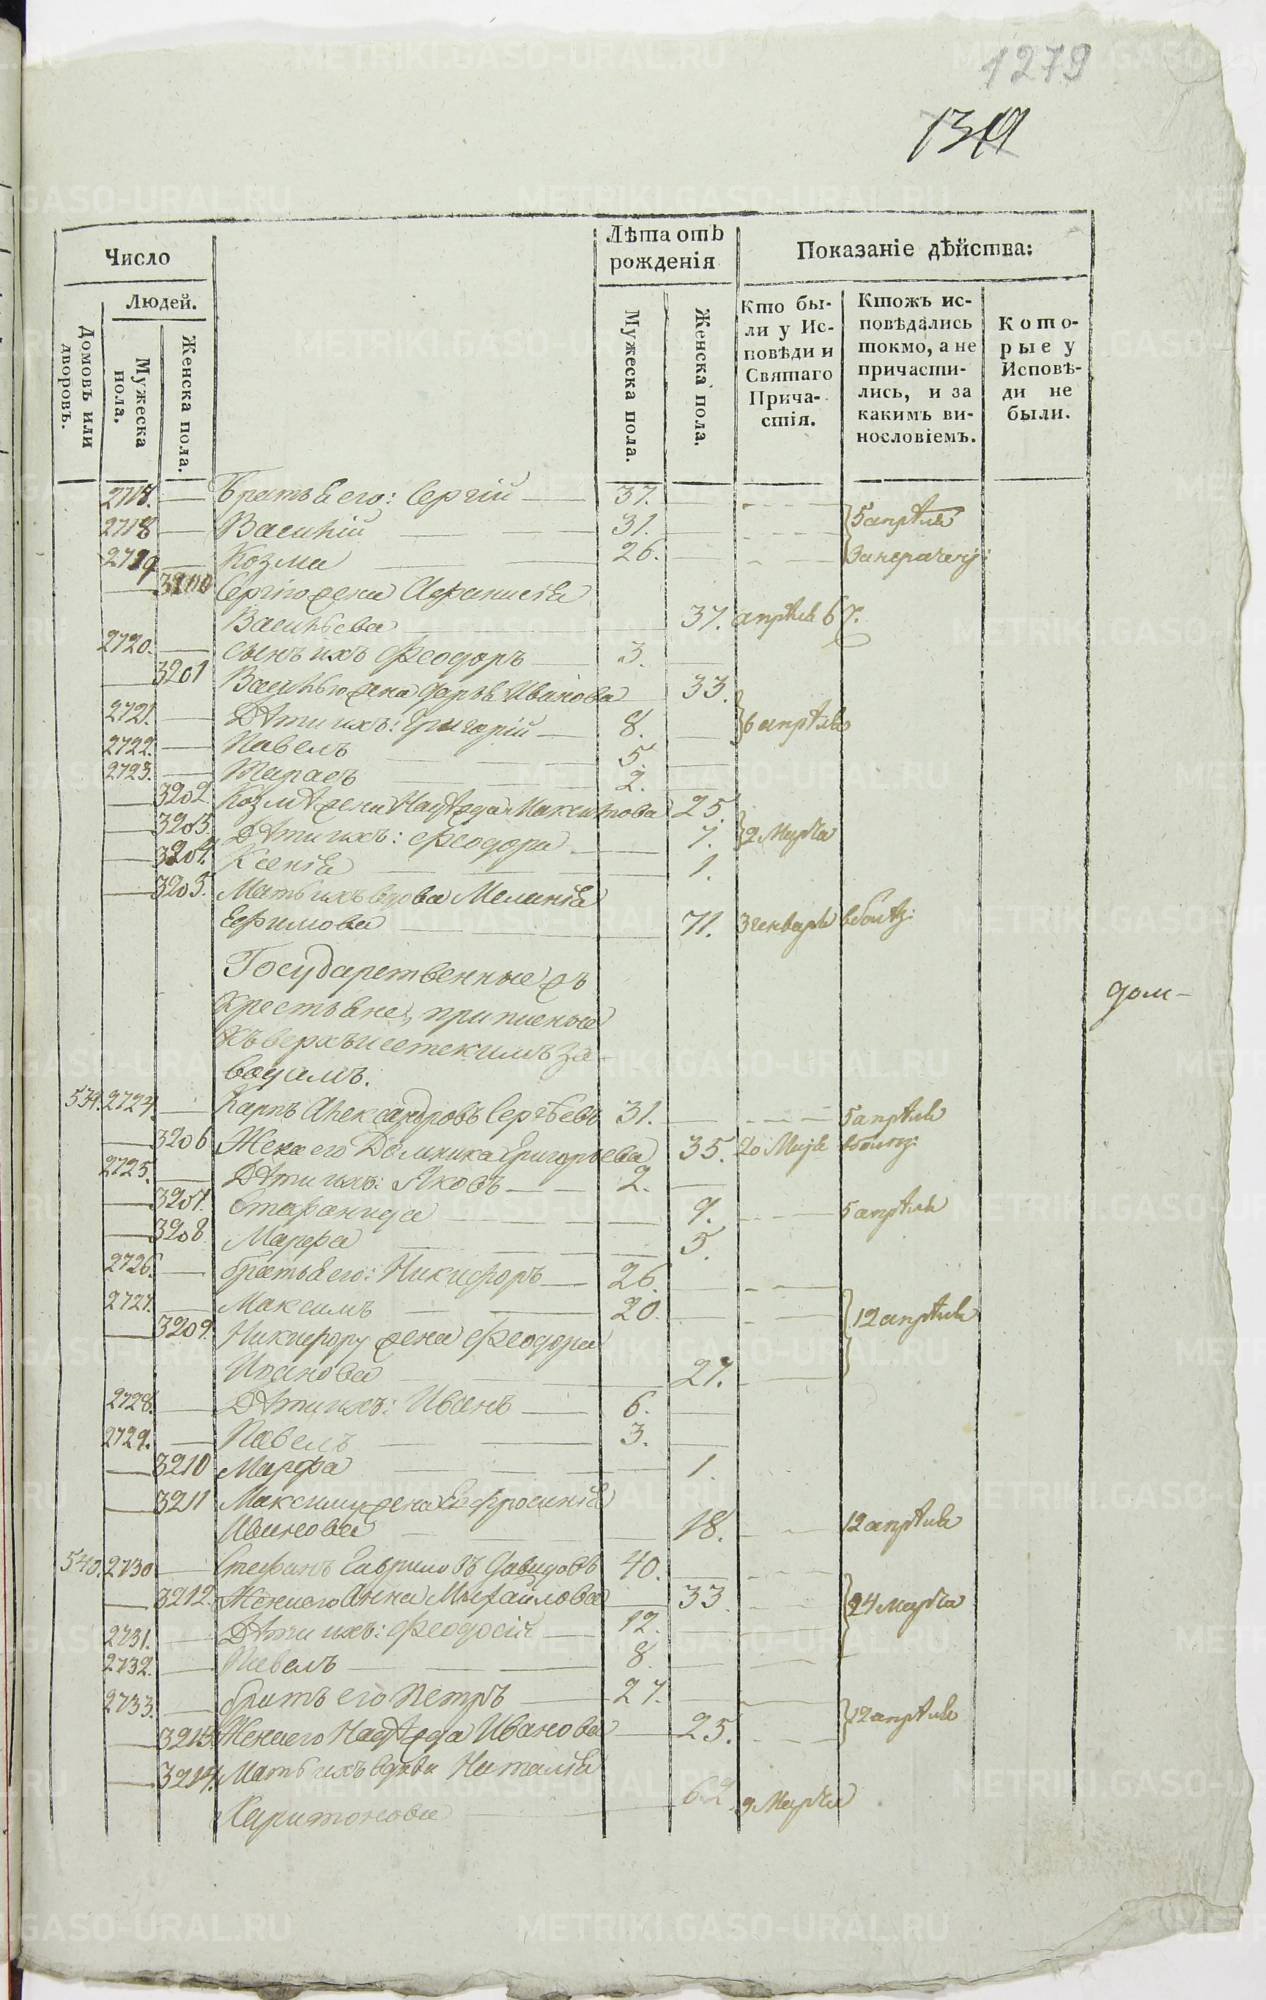 1279
1319
Число
Людей.
Домовъ или дворовъ.
Мужеска пола.
Женска пола.
Лѣта отъ рожденія
Мужеска пола.
Женска пола.
Показаніе дѣйства:
Кто бы-
ли у Ис-
повѣди и
Святаго
Прича-
стія.
Ктожъ ис-
повѣдались
токмо, а не
причасти-
лись, и за
какимъ ви-
нословіемъ.
Кото-
рые у
Исповѣ-
ди не
были.
Братья его: Сергій 37.
2718 Василій 31. 5 апрѣля
2719 Козма 26.
3200 Сергію жена
Васильева 37. апрѣля 6
2720. сынъ ихъ Феодоръ 3.
3201 Василью жена Дарья Иванова 33.
2721. Дѣти ихъ: Григорій 8. 6 апрѣля
2722. Павелъ 5.
2723. Тарасъ 2.
3202 Козмѣ жена Надѣжда Максимова 25.
3203. Дѣти ихъ: Феодора 7. 2 Марта
3204. Ксенія 1.
3205. Мать ихъ вдова Меланія
Ефимова 71. 3 генваря в болѣз:
Государственные жъ
крестьяне, приписные
къ верхъисетскимъ за-
водамъ.
дом-
539. 2724. Карпъ Александровъ Сергѣевъ 31. 5 апрѣля
3206 Жена его Домника Григорьева 35. 20 Маія в болѣз:
2725. Дѣти ихъ: Яковъ 2.
3207. Стефанида 9. 5 апрѣля
3208 Марфа 5.
2726. братья его: Никифоръ 26.
2727. Максимъ 20. 12 апрѣля
3209. Никифору жена Феодора
27.
2728. Дѣти ихъ: Иванъ 6.
2729. Павелъ 3.
3210 Марфа 1.
3211 Максиму жена Евфросинія
Иванова 18. 12 апрѣля
540. 2730 Стефанъ Гавриловъ Давидовъ 40.
3212. Жена его Анна Михайлова 33 24 марта
2731. Дѣти ихъ: Феодосій 12.
2732. Павелъ 8.
2733. братъ его Петръ 27.
3213 Жена его Надѣжда Иванова 25. 12 апрѣля
3214. Мать ихъ вдова Наталія
Харитонова 62. 9 Марта
METRIKI.GASO-URAL.RU